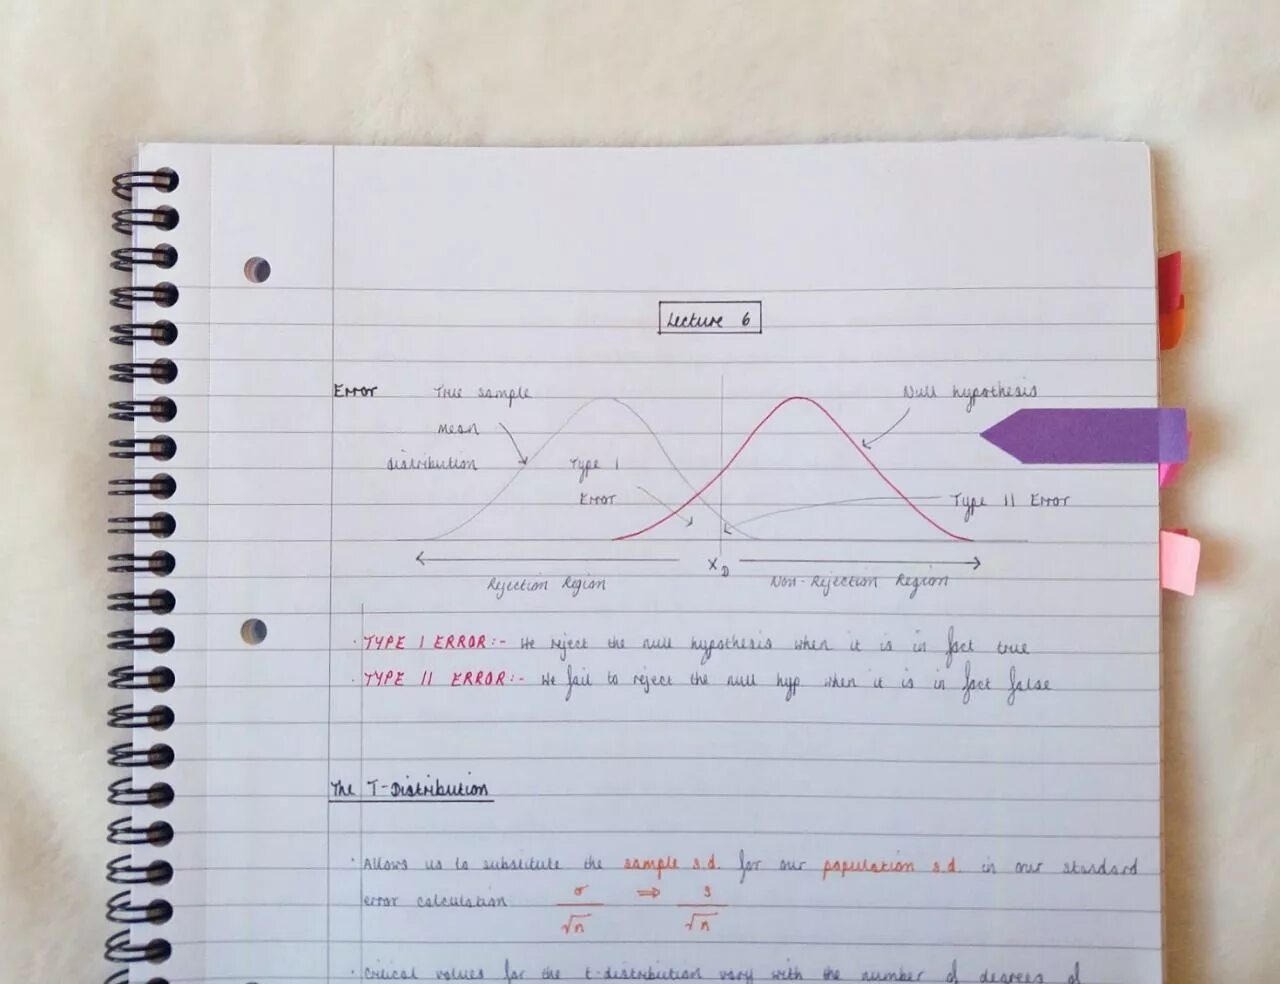 Lecture 6
Error
True sample
mean
distribution
Type I
Error
Null hypothesis
Type II Error
X_D
Rejection Region
Non-Rejection Region
· TYPE I ERROR:- We reject the null hypothesis when it is in fact true
· TYPE II ERROR:- We fail to reject the null hyp when it is in fact false
The T-Distribution
· Allows us to substitute the sample s.d. for our population s.d. in our standard
error calculation σ/√n ⇒ s/√n
· Critical values for the t-distribution vary with the number of degrees of